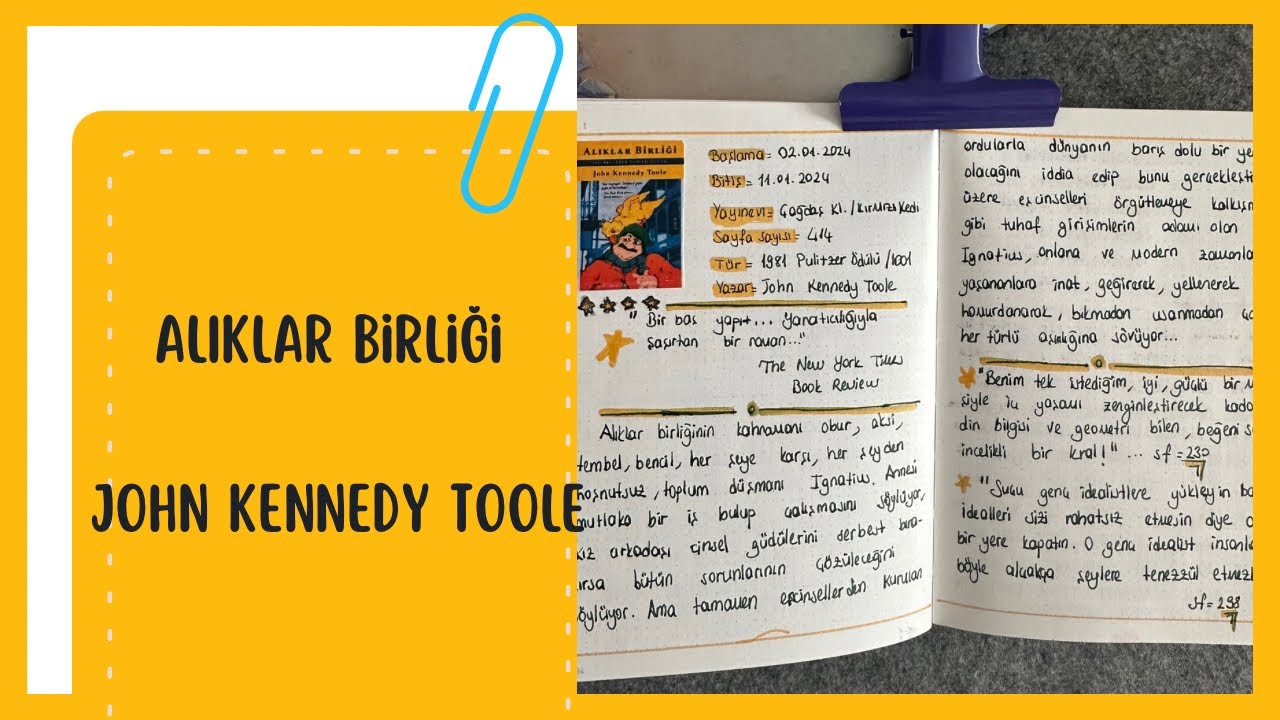 ALIKLAR BİRLİĞİ
JOHN KENNEDY TOOLE
ALIKLAR BİRLİĞİ
John Kennedy Toole
Başlama = 02.01.2024
Bitiş = 11.01.2024
Yayınevi = Çağdaş Kl. / Kırmızı Kedi
Sayfa sayısı = 414
Tür = 1981 Pulitzer Ödülü / 1001
Yazar = John Kennedy Toole
"Bir baş yapıt... Yaratıcılığıyla
şaşırtan bir roman..."
The New York Times
Book Review
Alıklar birliğinin kahramanı obur, aksi,
tembel, bencil, her şeye karşı, her şeyden
hoşnutsuz, toplum düşmanı Ignatius. Annesi
mutlaka bir iş bulup çalışmasını söylüyor,
kız arkadaşı cinsel güdülerini serbest bıra-
ırsa bütün sorunlarının çözüleceğini
söylüyor. Ama tamamen eşcinsellerden kurulan
ordularla dünyanın barış dolu bir ye
olacağını iddia edip bunu gerçekleşti
üzere eşcinselleri örgütlemeye kalkışm
gibi tuhaf girişimlerin adamı olan
Ignatius, onlara ve modern zamanla
yaşananlara inat, geğirerek, yellenerek
homurdanarak, bıkmadan usanmadan
her türlü aşırılığına sövüyor...
"Benim tek istediğim, iyi, güçlü bir
siyle iç yaşamı zenginleştirecek kada
din bilgisi ve geometri bilen, beğeni s
incelikli bir kral!" ... sf = 230
"Suçu genç idealistlere yükleyin ba
idealleri sizi rahatsız etmesin diye
bir yere kapatın. O genç idealist insanla
böyle alçakça şeylere tenezzül etmezl
sf = 298